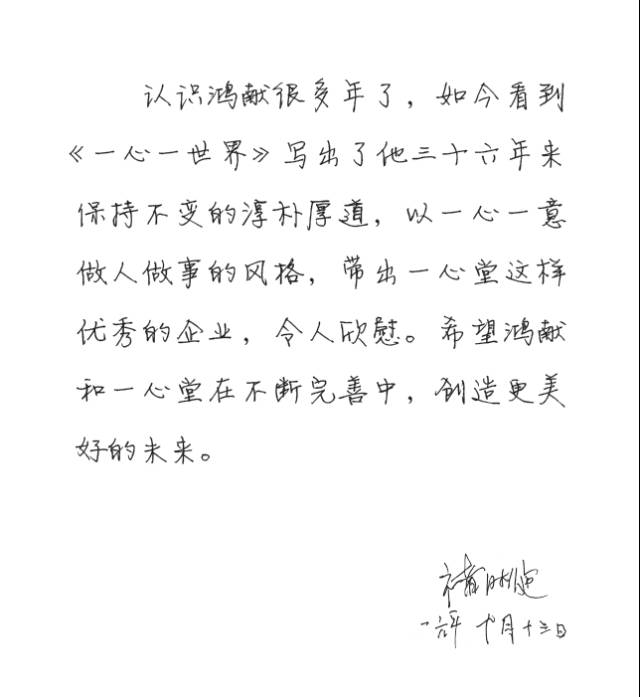 认识鸿献很多年了，如今看到
《一心一世界》写出了他三十六年来
保持不变的淳朴厚道，以一心一意
做人做事的风格，带出一心堂这样
优秀的企业，令人欣慰。希望鸿献
和一心堂在不断完善中，创造更美
好的未来。
褚时健
一六年 十月十三日